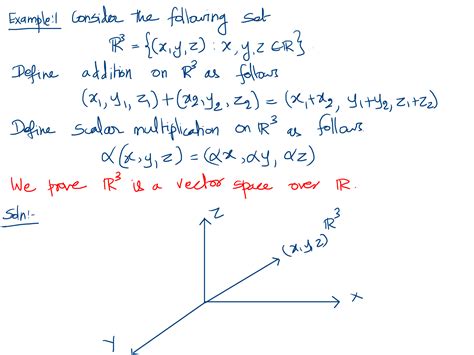 Example:1 Consider the following set
ℝ³ = {(x,y,z) : x,y,z ∈ ℝ}
Define addition on ℝ³ as follows
(x₁, y₁, z₁) + (x₂, y₂, z₂) = (x₁+x₂, y₁+y₂, z₁+z₂)
Define Scalar multiplication on ℝ³ as follows
α(x,y,z) = (αx, αy, αz)
We prove ℝ³ is a vector space over ℝ.
Soln:-
Z
ℝ³
(x,y,z)
X
Y